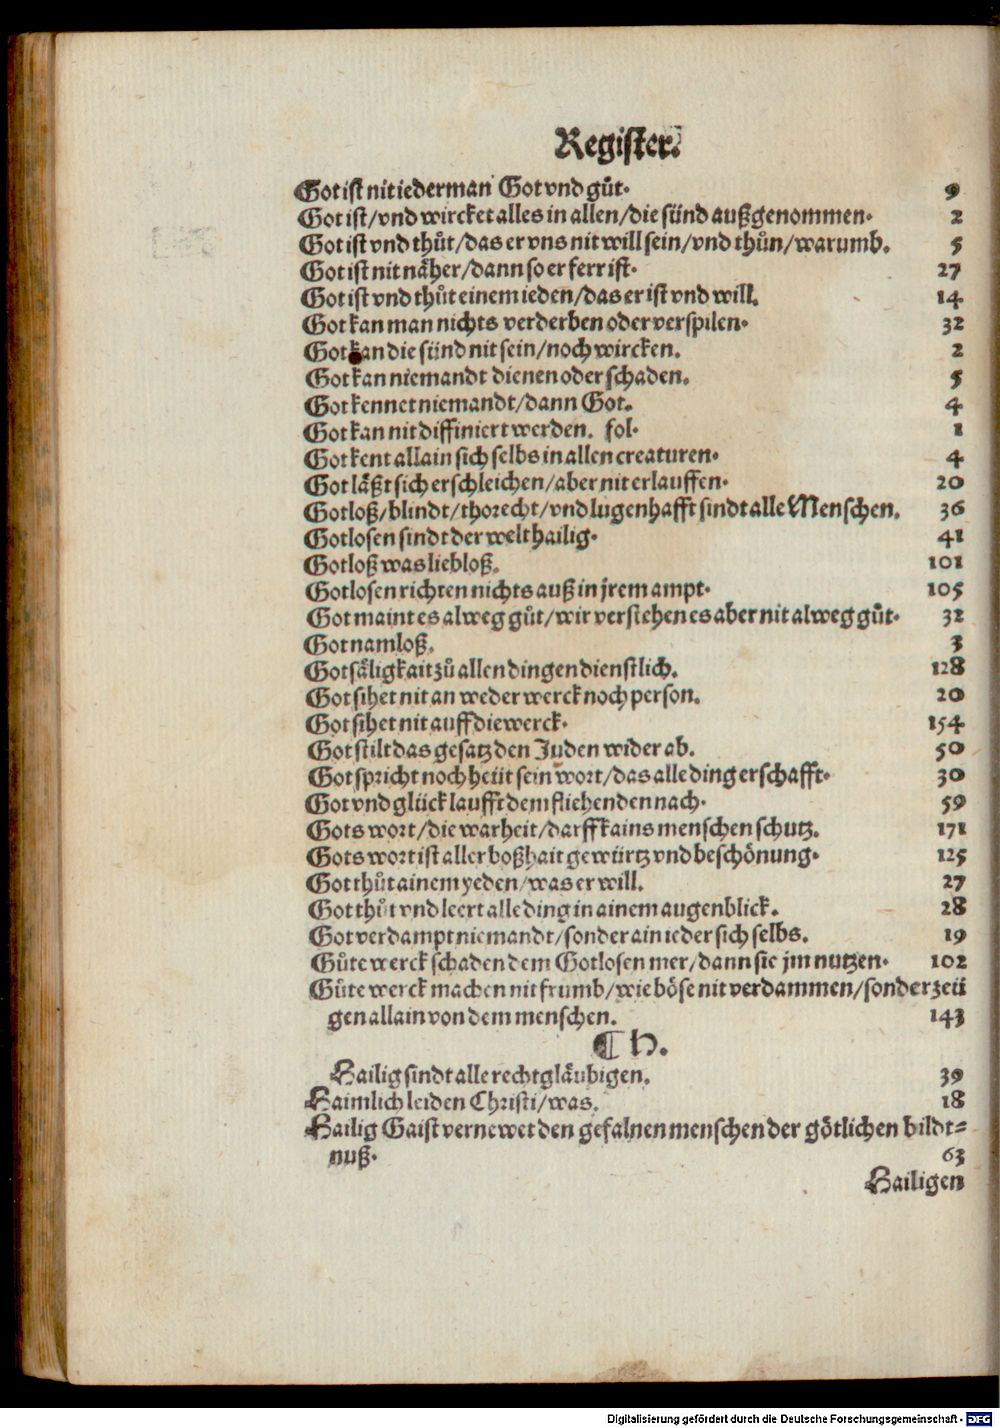 Register.
Got ist nit iederman Got vnd gůt. 9
Got ist/vnd wircket alles in allen/die sünd außgenommen. 2
Got ist vnd thůt/das er vns nit will sein/vnd thůn/warumb. 5
Got ist nit näher/dann so er ferr ist. 27
Got ist vnd thůt einem ieden/das er ist vnd will. 14
Got kan man nichts verderben oder verspilen. 32
Got kan die sünd nit sein/noch wircken. 2
Got kan niemandt dienen oder schaden. 5
Got kennet niemandt/dann Got. 4
Got kan nit diffiniert werden. fol. 1
Got kent allain sich selbs in allen creaturen. 4
Got läßt sich erschleichen/aber nit erlauffen. 20
Gotloß/blindt/thorecht/vnd lugenhafft sindt alle Menschen. 36
Gotlosen sindt der welt hailig. 41
Gotloß was liebloß. 101
Gotlosen richten nichts auß in jrem ampt. 105
Got maint es alweg gůt/wir verstehen es aber nit alweg gůt. 32
Got namloß. 3
Gotsäligkait zů allen dingen dienstlich. 128
Got sihet nit an weder werck noch person. 20
Got sihet nit auff die werck. 154
Got stilt das gesatz den Juden wider ab. 50
Got spricht noch heüt sein wort/das alle ding erschafft. 30
Got vnd glück laufft dem fliehenden nach. 59
Gots wort/die warheit/darff kains menschen schutz. 171
Gots wort ist aller boßhait gewürtz vnd beschönung. 125
Got thůt ainem yeden/was er will. 27
Got thůt vnd leert alle ding in ainem augenblick. 28
Got verdampt niemandt/sonder ain ieder sich selbs. 19
Gůte werck schaden dem Gotlosen mer/dann sie jm nutzen. 102
Gůte werck machen nit frumb/wie böse nit verdammen/sonder zeü
gen allain von dem menschen. 143
¶ H.
Hailig sindt alle rechtgläubigen. 39
Haimlich leiden Christi/was. 18
Hailig Gaist vernewet den gefalnen menschen der götlichen bildt=
nuß. 63
Hailigen
Digitalisierung gefördert durch die Deutsche Forschungsgemeinschaft - DFG